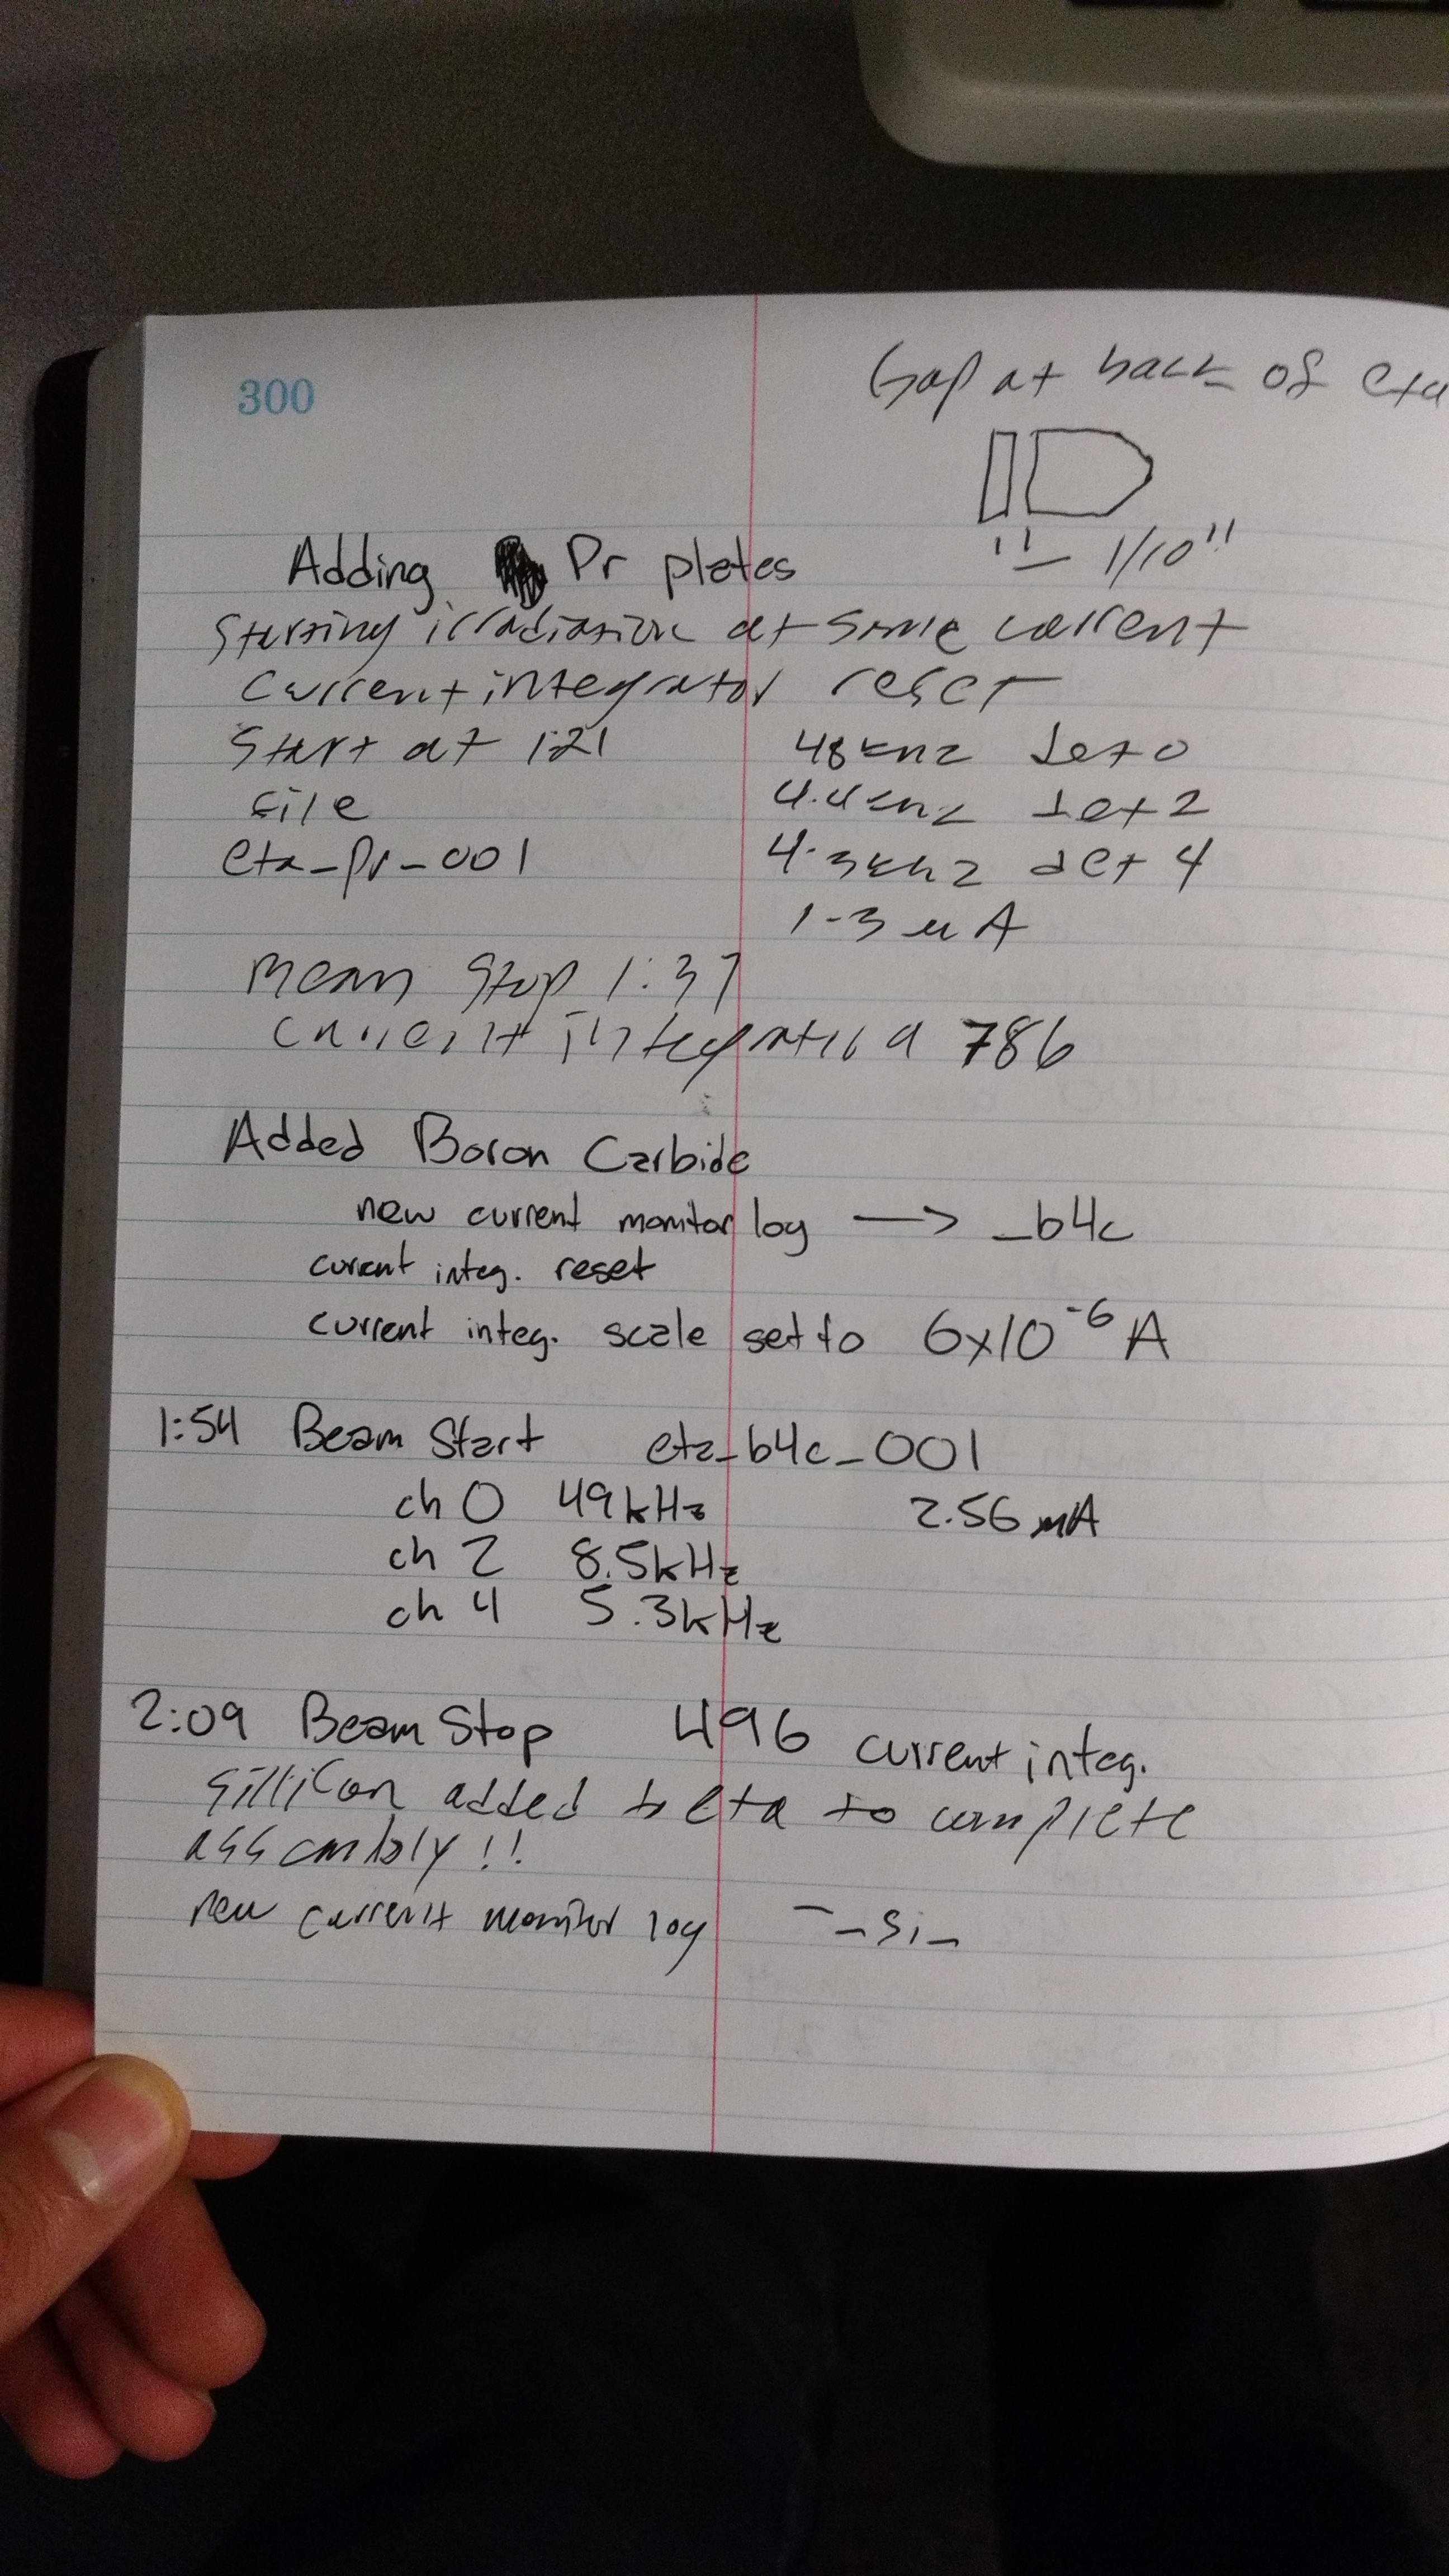 300
Gap at back of eta
1/10"
Adding Pr plates
Starting irradiation at same current
Current integrator reset
Start at 1:21
48 kHz det 0
file
4.4 kHz det 2
eta_Pr_001
4.3 kHz det 4
1-3 μA
Beam Stop 1:37
Current integration 786
Added Boron Carbide
new current monitor log → _b4c
curent integ. reset
current integ. scale set to 6x10⁻⁶ A
1:54 Beam Start eta_b4c_001
ch 0 49kHz 2.56 μA
ch 2 8.5kHz
ch 4 5.3kHz
2:09 Beam Stop 496 current integ.
Sillicon added to eta to complete
assembly!!
new current monitor log _si_